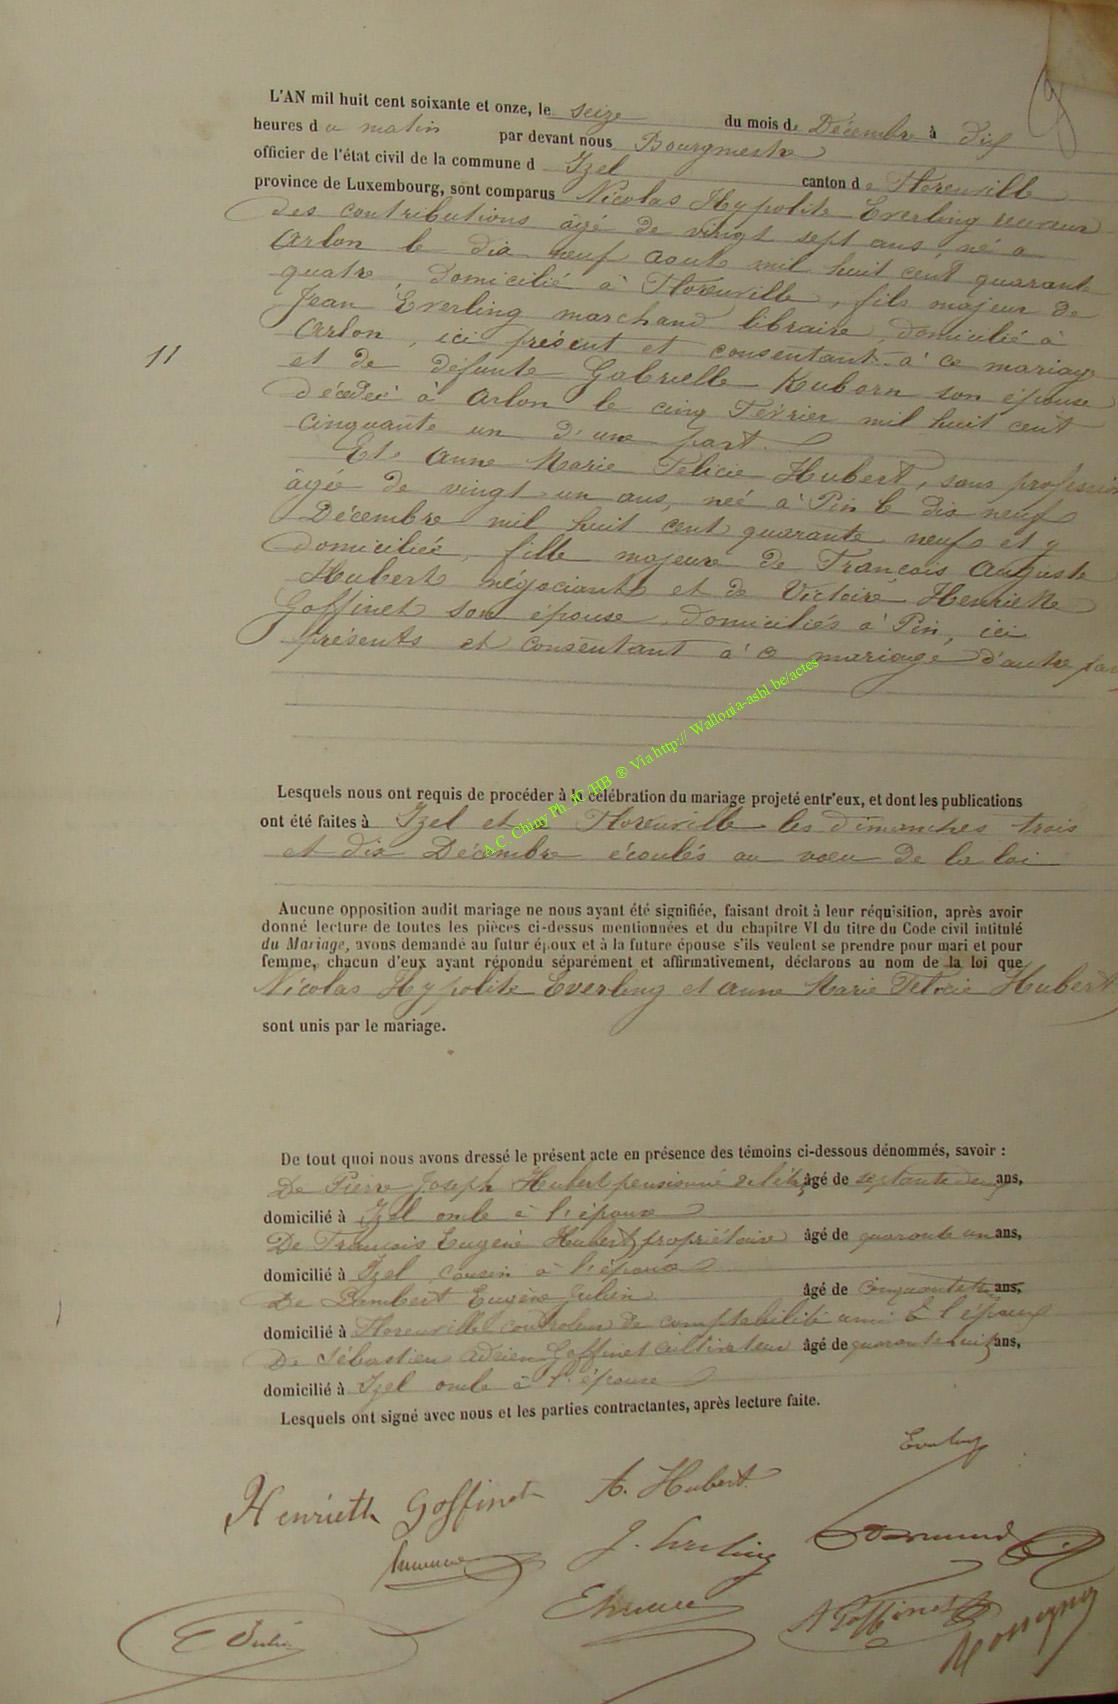 L'AN mil huit cent soixante et onze, le seize du mois de Décembre à dix
heures du matin par devant nous Bourgmestre
officier de l'état civil de la commune d Izel canton de Florenville
province de Luxembourg, sont comparus Nicolas Hypolite Everling receveur
des contributions âgé de vingt sept ans, né a
Arlon le dix neuf août mil huit cent quarante
quatre, domicilié à Florenville, fils majeur de
Jean Everling marchand libraire, domicilié à
Arlon, ici présent et consentant à ce mariage
11
et de défunte Gabrielle Kuborn son épouse
décédée à Arlon le cinq Février mil huit cent
cinquante un d'une part.
Et Anne Marie Felicie Hubert, sans profession
âgée de vingt un ans, née à Pin le dix neuf
Décembre mil huit cent quarante neuf et y
domiciliée, fille majeure de François Auguste
Hubert négociant et de Victoire Henriette
Goffinet son épouse, domiciliés à Pin, ici
présents et consentant à ce mariage d'autre par
A.C. Chiny Ph. JC-HB ® Via http:// Wallonia-asbl.be/actes
Lesquels nous ont requis de procéder à la célébration du mariage projeté entr'eux, et dont les publications
ont été faites à Izel et à Florenville les dimanches trois
et dix Décembre écoulés au voeu de la loi
Aucune opposition audit mariage ne nous ayant été signifiée, faisant droit à leur réquisition, après avoir
donné lecture de toutes les pièces ci-dessus mentionnées et du chapitre VI du titre du Code civil intitulé
du Mariage, avons demandé au futur époux et à la future épouse s'ils veulent se prendre pour mari et pour
femme, chacun d'eux ayant répondu séparément et affirmativement, déclarons au nom de la loi que
Nicolas Hypolite Everling et Anne Marie Felicie Hubert
sont unis par le mariage.
De tout quoi nous avons dressé le présent acte en présence des témoins ci-dessous dénommés, savoir :
De Pierre Joseph Hubert pensionné de l'état âgé de septante deux ans,
domicilié à Izel oncle à l'épouse
De François Eugène Hubert propriétaire âgé de quarante un ans,
domicilié à Izel cousin à l'épouse
De Lambert Eugène Julien âgé de cinquante ans,
domicilié à Florenville controleur de comptabilité ami à l'époux
De Sébastien Adrien Goffinet cultivateur âgé de quarante huit ans,
domicilié à Izel oncle à l'épouse
Lesquels ont signé avec nous et les parties contractantes, après lecture faite.
Everling
Henriette Goffinet A. Hubert
J. Everling
E Julien A Goffinet